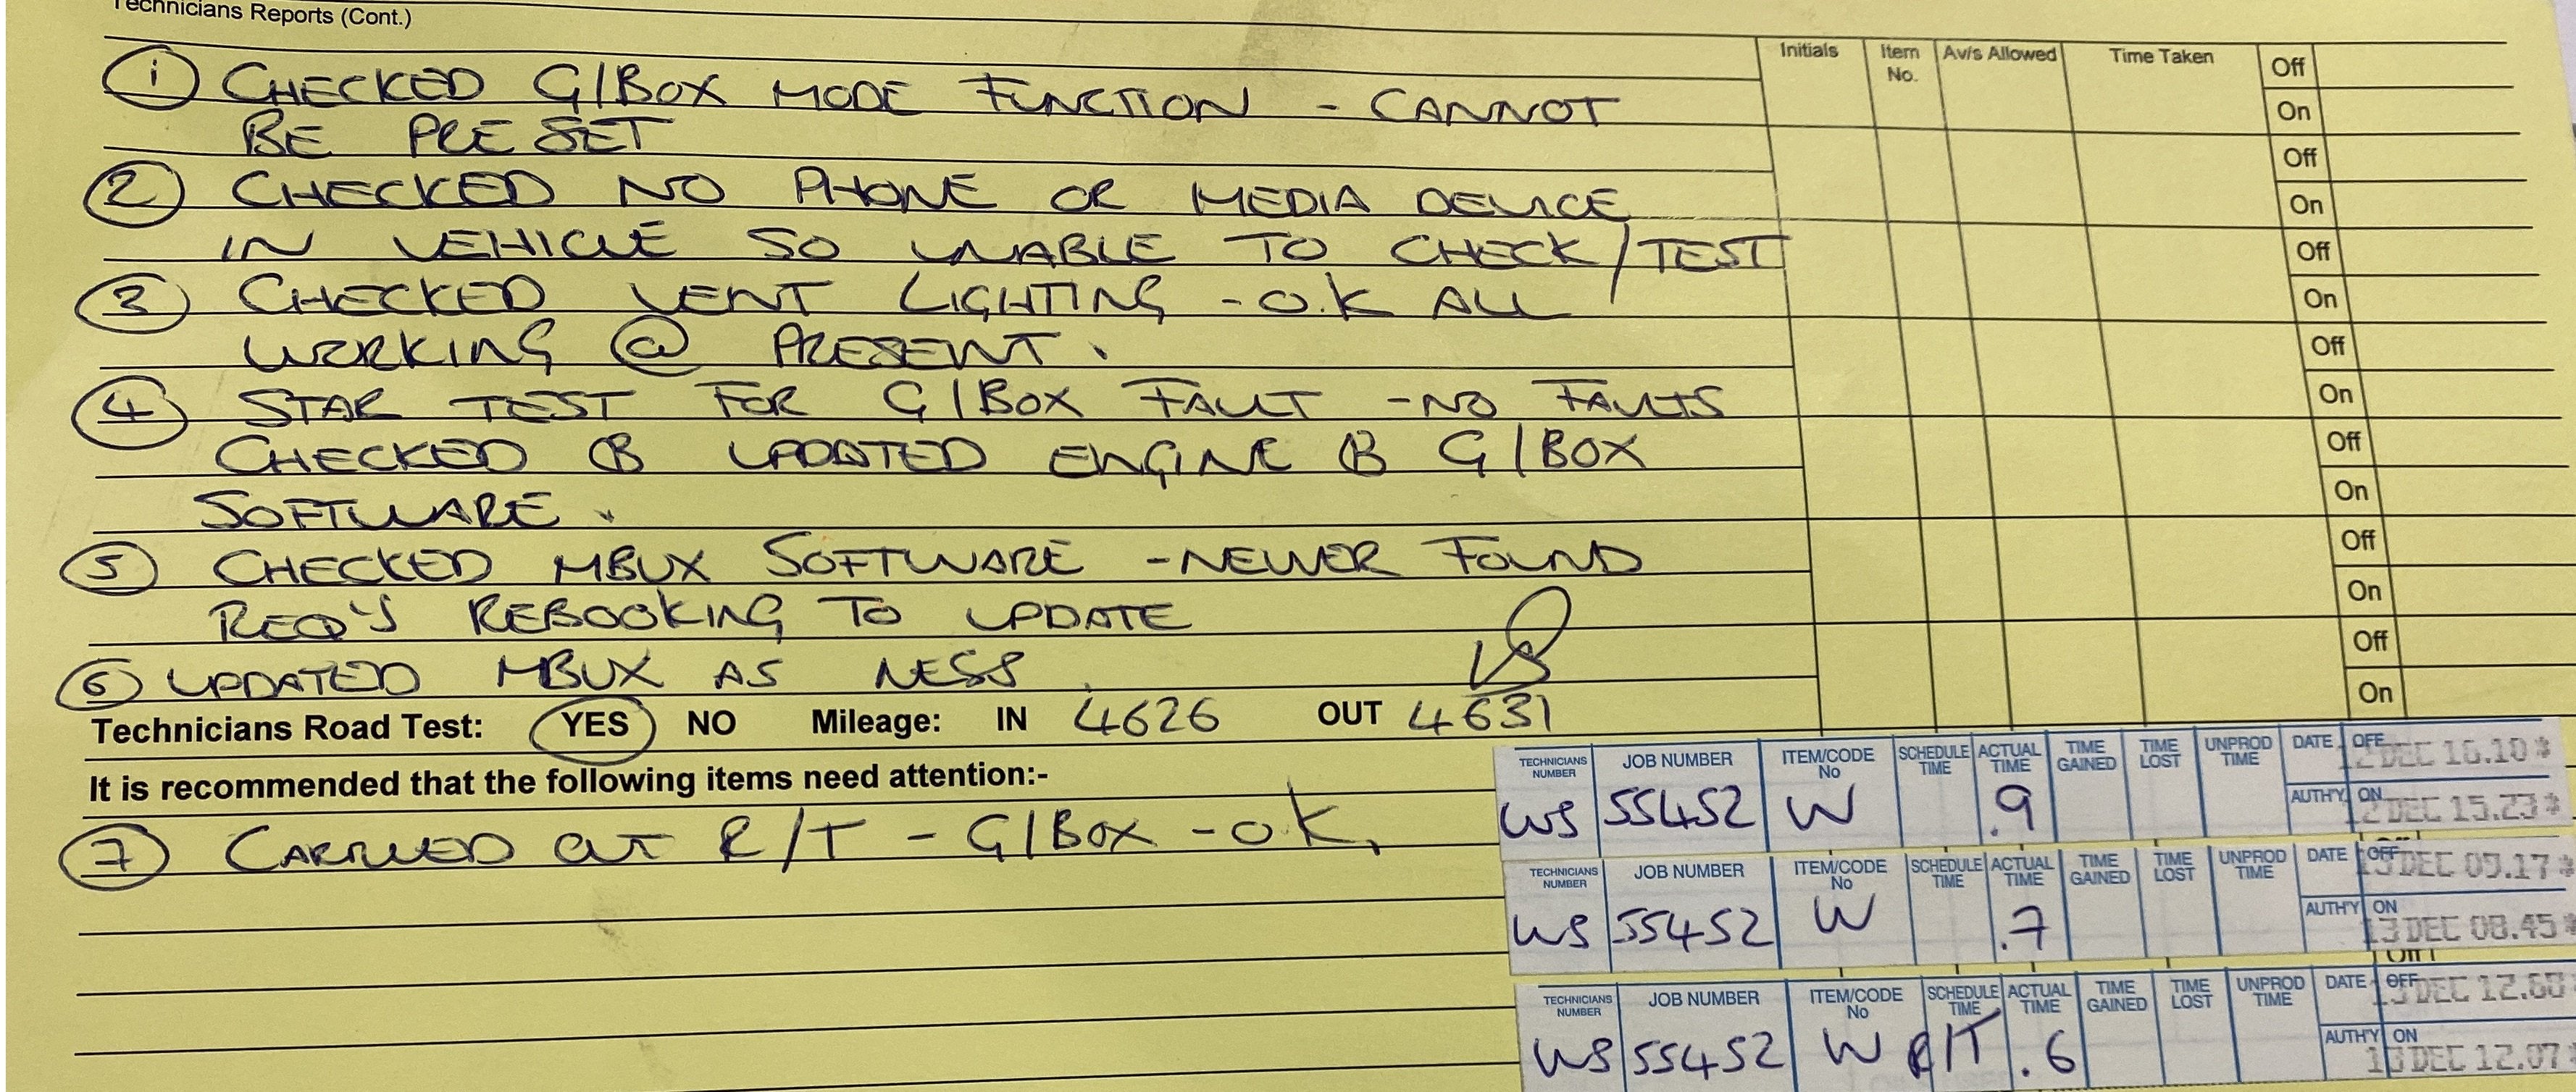 Technicians Reports (Cont.)
Initials Item No. Av/s Allowed Time Taken Off
On
Off
On
Off
On
Off
On
Off
On
Off
On
Off
On
1 CHECKED G/BOX MODE FUNCTION - CANNOT
BE PRE SET
2 CHECKED NO PHONE OR MEDIA DEVICE
IN VEHICLE SO UNABLE TO CHECK/TEST
3 CHECKED VENT LIGHTING - O.K ALL
WORKING @ PRESENT.
4 STAR TEST FOR G/BOX FAULT - NO FAULTS
CHECKED & UPDATED ENGINE & G/BOX
SOFTWARE.
5 CHECKED MBUX SOFTWARE - NEWER FOUND
REQ'S REBOOKING TO UPDATE
6 UPDATED MBUX AS NESS.
Technicians Road Test: YES NO Mileage: IN 4626 OUT 4631
It is recommended that the following items need attention:-
7 CARRIED OUT R/T - G/BOX - O.K.
TECHNICIANS NUMBER JOB NUMBER ITEM/CODE No SCHEDULE TIME ACTUAL TIME TIME GAINED TIME LOST UNPROD TIME DATE OFF 12 DEC 16.10
WS 55452 W .9 AUTH'Y ON 12 DEC 15.23
TECHNICIANS NUMBER JOB NUMBER ITEM/CODE No SCHEDULE TIME ACTUAL TIME TIME GAINED TIME LOST UNPROD TIME DATE OFF 13 DEC 09.17
WS 55452 W .7 AUTH'Y ON 13 DEC 08.45
TECHNICIANS NUMBER JOB NUMBER ITEM/CODE No SCHEDULE TIME ACTUAL TIME TIME GAINED TIME LOST UNPROD TIME DATE OFF 13 DEC
WS 55452 W R/T .6 AUTH'Y ON 13 DEC 12.07